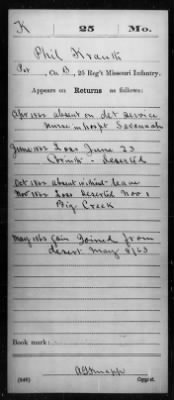 K 25 Mo.
Phil Krauth
Pvt., Co. B, 25 Reg't Missouri Infantry.
Appears on Returns as follows:
Apr 1862 absent on det service
Nurse in hospt Savannah
June 1862 Loss June 23
Corinth - deserted
Oct 1862 absent without leave
Nov 1862 Loss Deserted Nov 1
Big Creek
May 1863 Gain Joined from
desert May 2/63
Book mark:
(646)
Copyist.